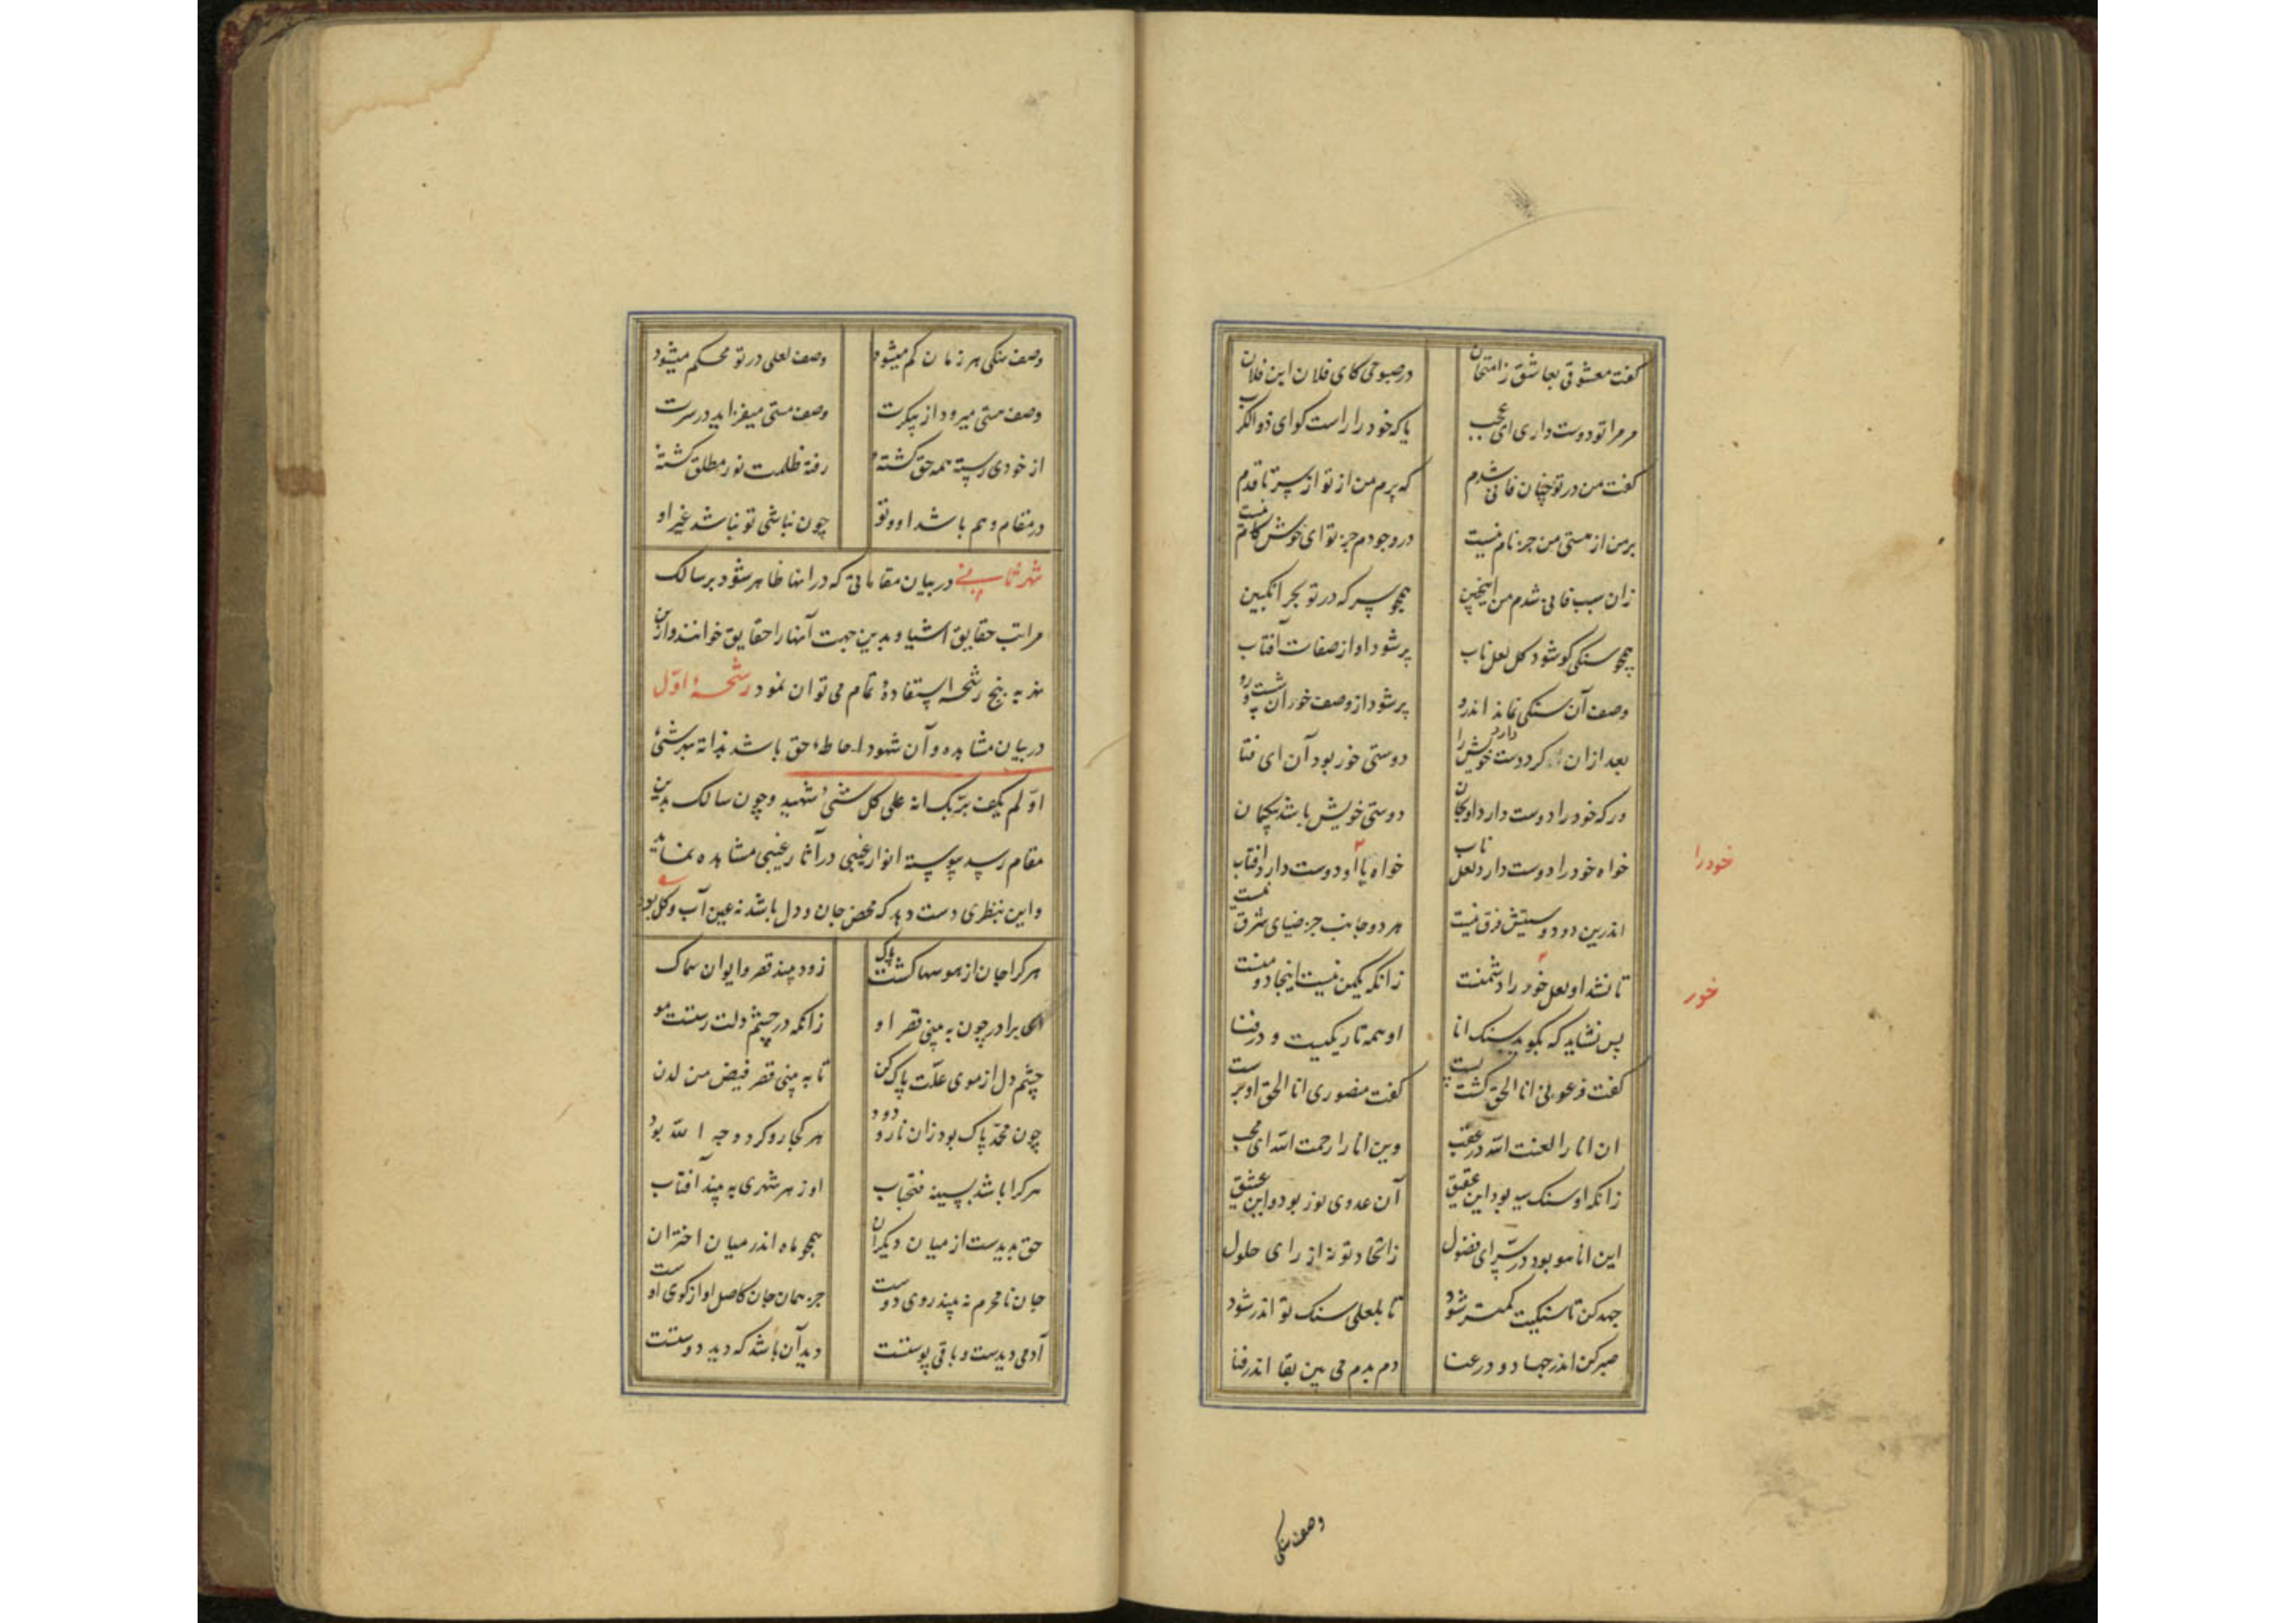 گفت معشوقی بعاشق زامتحان در صبوحی کای فلان این فلان
مر مرا تو دوست داری ای عجب یا که خود را راست گو ای ذوالکرب
گفت من در تو چنان فانی شدم که پرم من از تو از سر تا قدم
بر من از هستی من جز نام نیست در وجودم جز تو ای خوش کام نیست
زان سبب فانی شدم من اینچنین همچو سرکه در تو بحر انگبین
همچو سنگی کو شود کل لعل ناب پر شود او از صفات آفتاب
وصف آن سنگی نماند اندرو پر شود از وصف خور آن پشت و رو
بعد ازان گر دوست دارد خویش را دوستی خور بود آن ای فتا
ور که خود را دوست دارد او بجان دوستی خویش باشد بیگمان
خواه خود را دوست دارد لعل ناب خواه یا او دوست دارد آفتاب
خودرا
اندرین دو دوستیش فرق نیست هر دو جانب جز ضیای شرق نیست
تا نشد او لعل خود را دشمنست زانکه یکمن نیست اینجا دو منست
خور
پس نشاید که بگوید سنک انا او همه تاریکیست و در فنا
گفت فرعونی انا الحق گشت پست گفت منصوری انا الحق او برست
ان انا را لعنت الله در عقب وین انا را رحمت الله ای محب
زانکه او سنک سیه بود این عقیق آن عدوی نور بود و این عشیق
این انا هو بود در سر ای فضول ز اتحاد تو نه از رای حلول
جهد کن تا سنکیت کمتر شود تا بلعلی سنک تو اندر شود
صبر کن اندر جهاد و در عنا دم بدم می بین بقا اندر فنا
وصف سنکی
وصف سنکی هر زمان کم میشود وصف لعلی در تو محکم میشود
وصف هستی میرود از پیکرت وصف مستی میفزاید در سرت
از خودی رسته همه حق گشته رفته ظلمت نور مطلق گشته
در مقام وهم باشد او و تو چون نباشی تو نباشد غیر او
نهر ثانی در بیان مقاماتی که در اینها ظاهر شود بر سالک
مراتب حقایق اشیا و بدین جهت آنها را حقایق خوانند و ازین
نهر به پنج رشحه استفادهٔ تمام می توان نمود رشحهٔ اول
در بیان مشاهده و آن شهود احاطهٔ حق باشد بذاته بهر شئ
اولم یکف بربک انه علی کل شئ شهید و چون سالک بدین
مقام رسد پیوسته انوار غیبی در آثار غیبی مشاهده نماید
و این بنظری دست دهد که محض جان و دل باشد نه عین آب و گل بود
هر کرا جان از هوسها گشت پاک زود بیند قصر و ایوان سماک
ای برادر چون به بینی قصر او زانکه در چشم دلت رستست مو
چشم دل از موی علت پاک کن تا به بینی قصر فیض من لدن
چون محمد پاک بود زان نار و دود هر کجا رو کرد وجه الله بود
هر کرا باشد بسینه فتحباب او ز هر شهری به بیند آفتاب
حق بدیدست از میان دیگران همچو ماه اندر میان اختران
جان نامحرم نه بیند روی دوست جز همان جان کاصل او از کوی اوست
آدمی دیدست و باقی پوستست دید آن باشد که دید دوستست